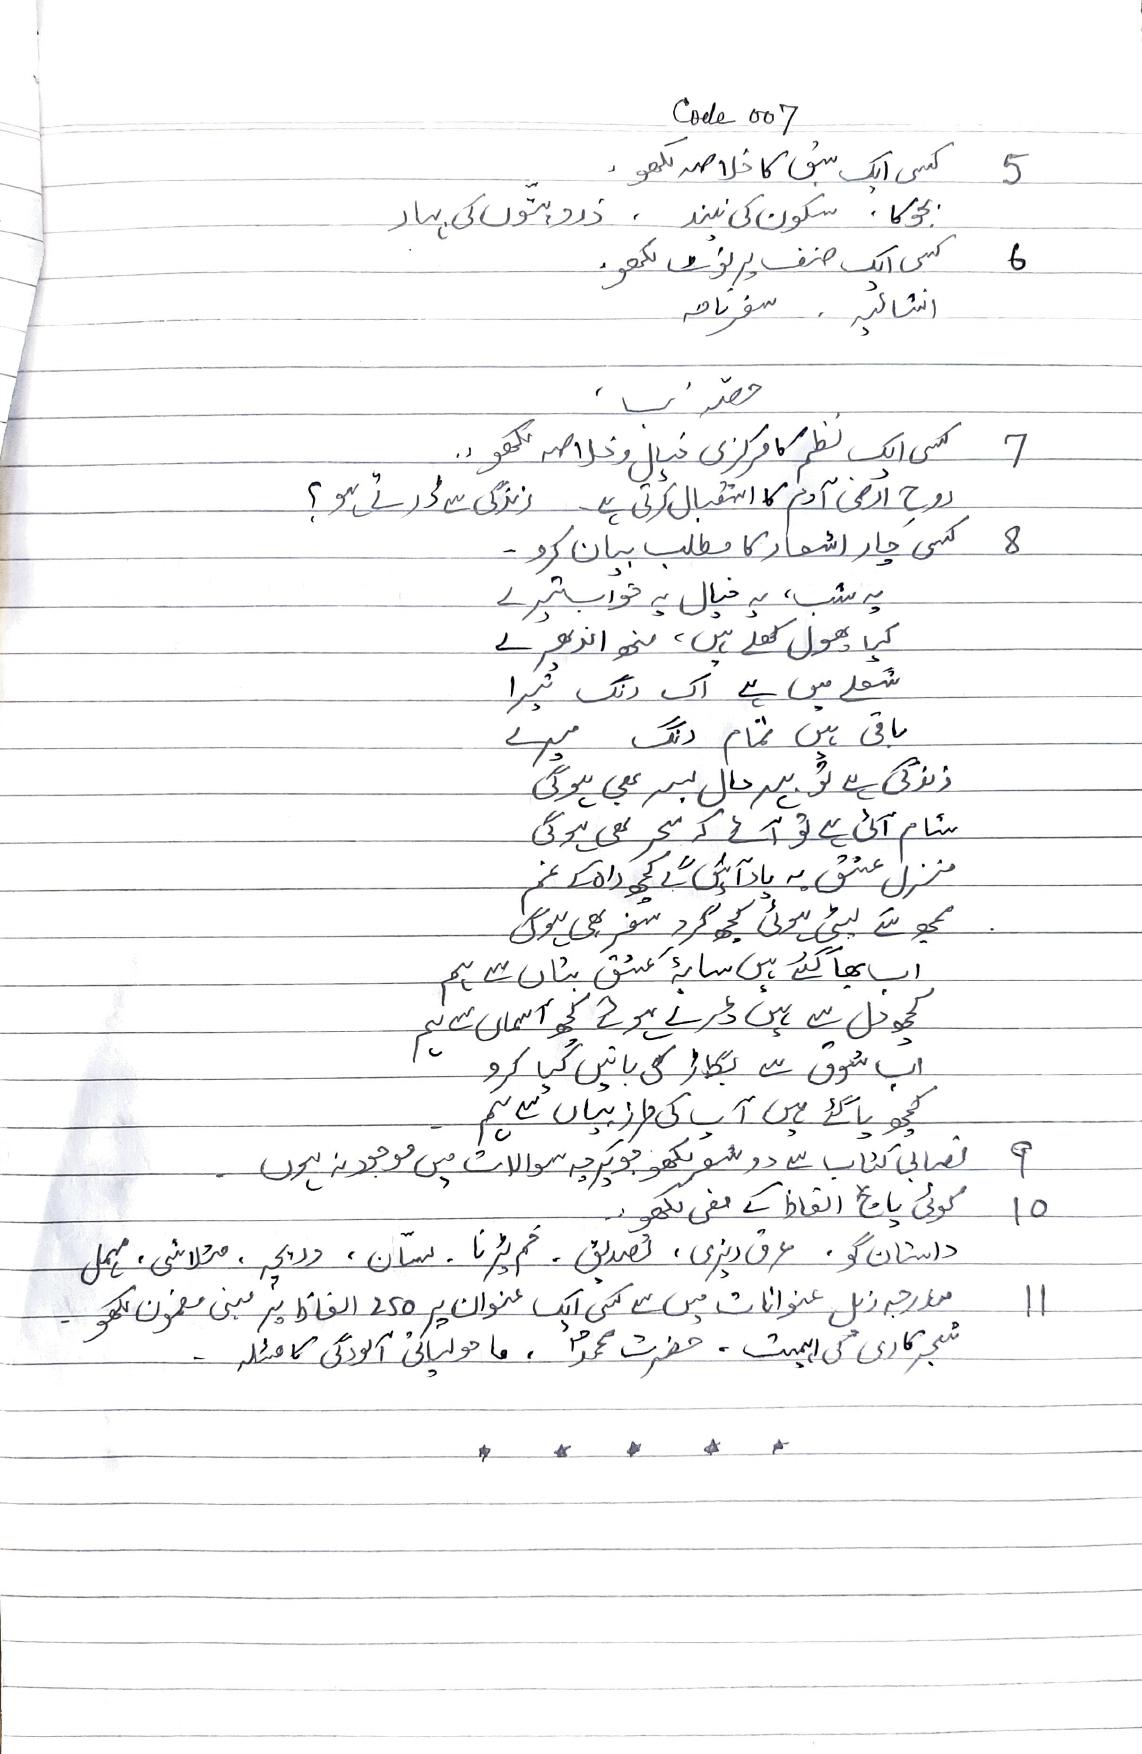 Code 007
5 کسی ایک سبق کا خلاصہ لکھو۔
بجوکا، سکون کی نیند ، زرد پتّوں کی بہار
6 کسی ایک صنف پر نوٹ لکھو۔
انشائیہ ، سفرنامہ
حصّہ 'ب'
7 کسی ایک نظم کا مرکزی خیال و خلاصہ لکھو۔
روحِ ارضی آدم کا استقبال کرتی ہے۔ زندگی سے ڈرتے ہو؟
8 کسی چار اشعار کا مطلب بیان کرو۔
یہ شب، یہ خیال یہ خواب تیرے
کیا پھول کھلے ہیں، منھ اندھیرے
شعلے میں ہے اک رنگ تیرا
باقی ہیں تمام رنگ میرے
زندگی ہے تو بہر حال بسر بھی ہوگی
شام آئی ہے تو آئے کہ سحر بھی ہوگی
منزلِ عشق پہ یاد آئیں گے کچھ راہ کے غم
مجھ سے لپٹی ہوئی کچھ گردِ سفر بھی ہوگی
اب بھاگتے ہیں سایۂ عشق بتاں سے ہم
کچھ دل سے ہیں ڈرے ہوئے کچھ آسماں سے ہم
اب شوق سے بگاڑ کی باتیں کیا کرو
کچھ پا گئے ہیں آپ کی طرز بیاں سے ہم ۔
9 نصابی کتاب سے دو شعر لکھو جو پرچہ سوالات میں موجود نہ ہوں ۔
10 کوئی پانچ الفاظ کے معنی لکھو۔
داستان گو ، عرق ریزی ، تصدیق ۔ خم پڑنا ۔ ستّان ، دریچہ ، متلاشی ، مہمل
11 مندرجہ ذیل عنوانات میں سے کسی ایک عنوان پر 250 الفاظ پر مبنی مضمون لکھو ۔
شجر کاری کی اہمیت ، حضرت محمدؐ ، ماحولیاتی آلودگی کا مسئلہ ۔